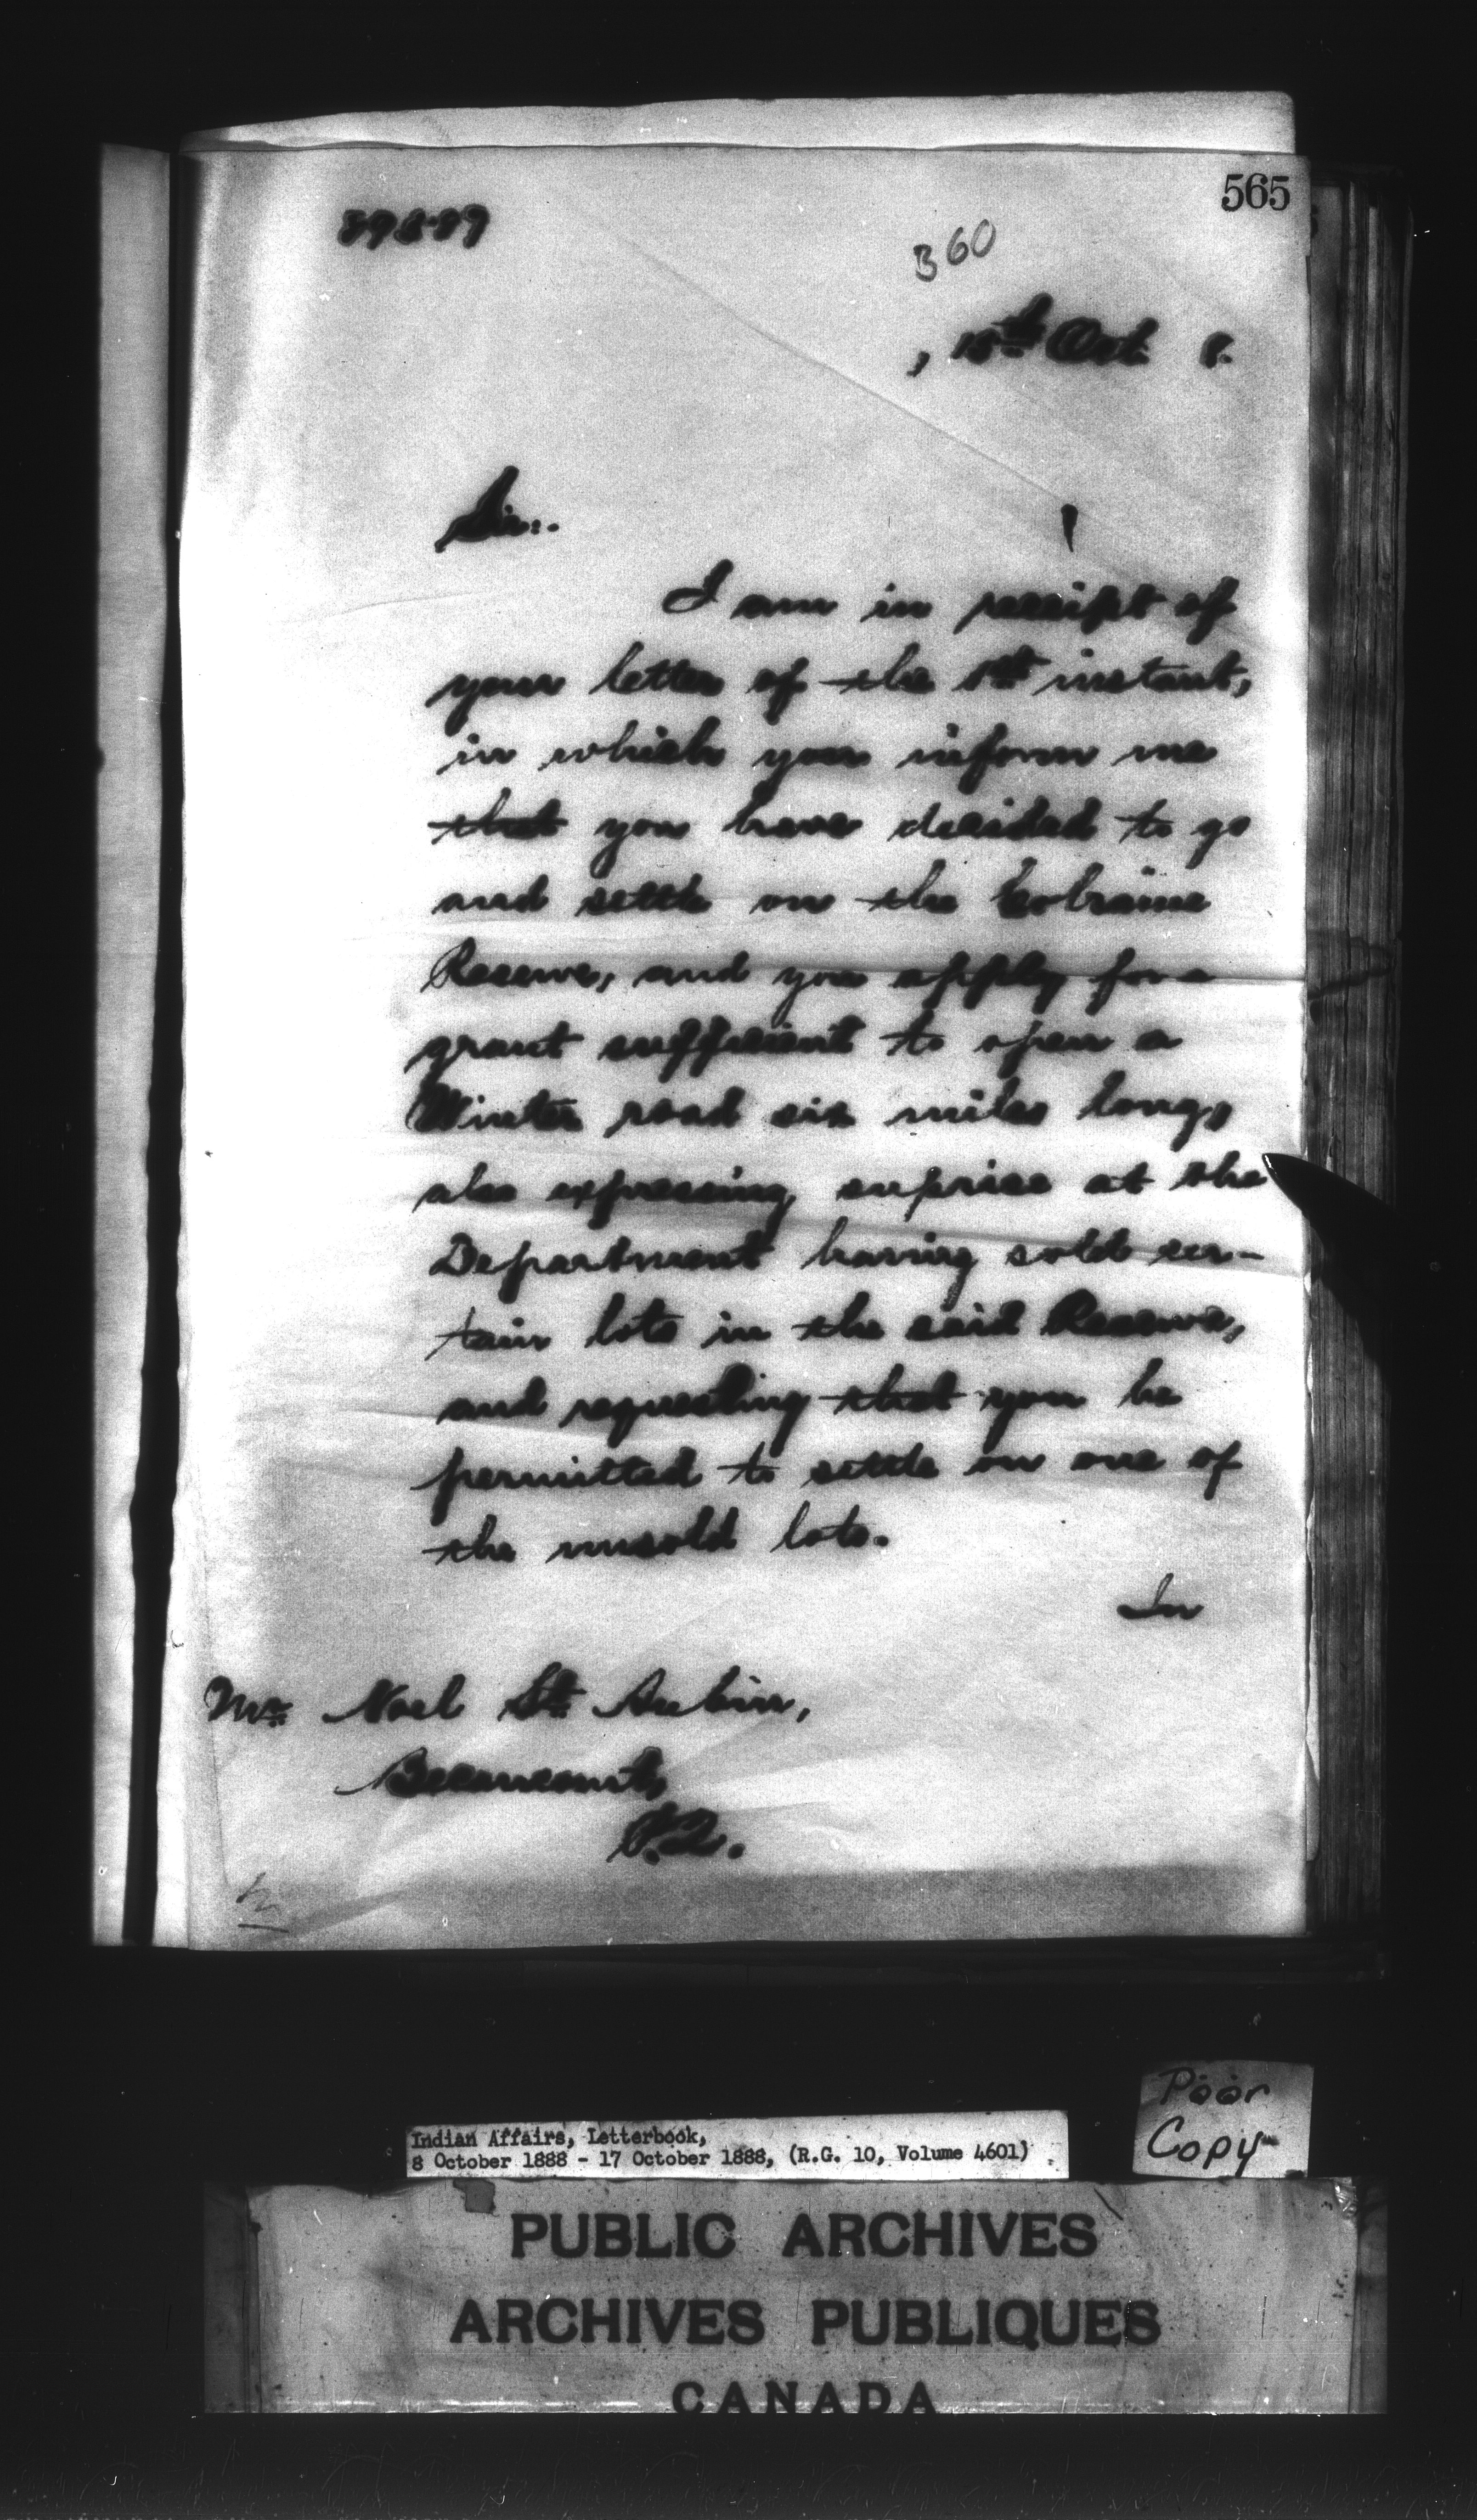 565
360
, 15th Oct 8.
Sir:.
I am in receipt of
your letter of the instant,
in which you inform me
that you have decided to go
and settle on the Colraine
Reserve, and you apply for a
grant sufficient to open a
Winter road six miles long,
also expressing suprise at the
Department having sold cer-
tain lots in the said Reserve,
and requesting that you be
permitted to settle on one of
the unsold lots.
In
Mr Noel St Aubin,
Becancourt,
P.Q.
Poor
Copy
Indian Affairs, Letterbook,
8 October 1888 - 17 October 1888, (R.G. 10, Volume 4601)
PUBLIC ARCHIVES
ARCHIVES PUBLIQUES
CANADA